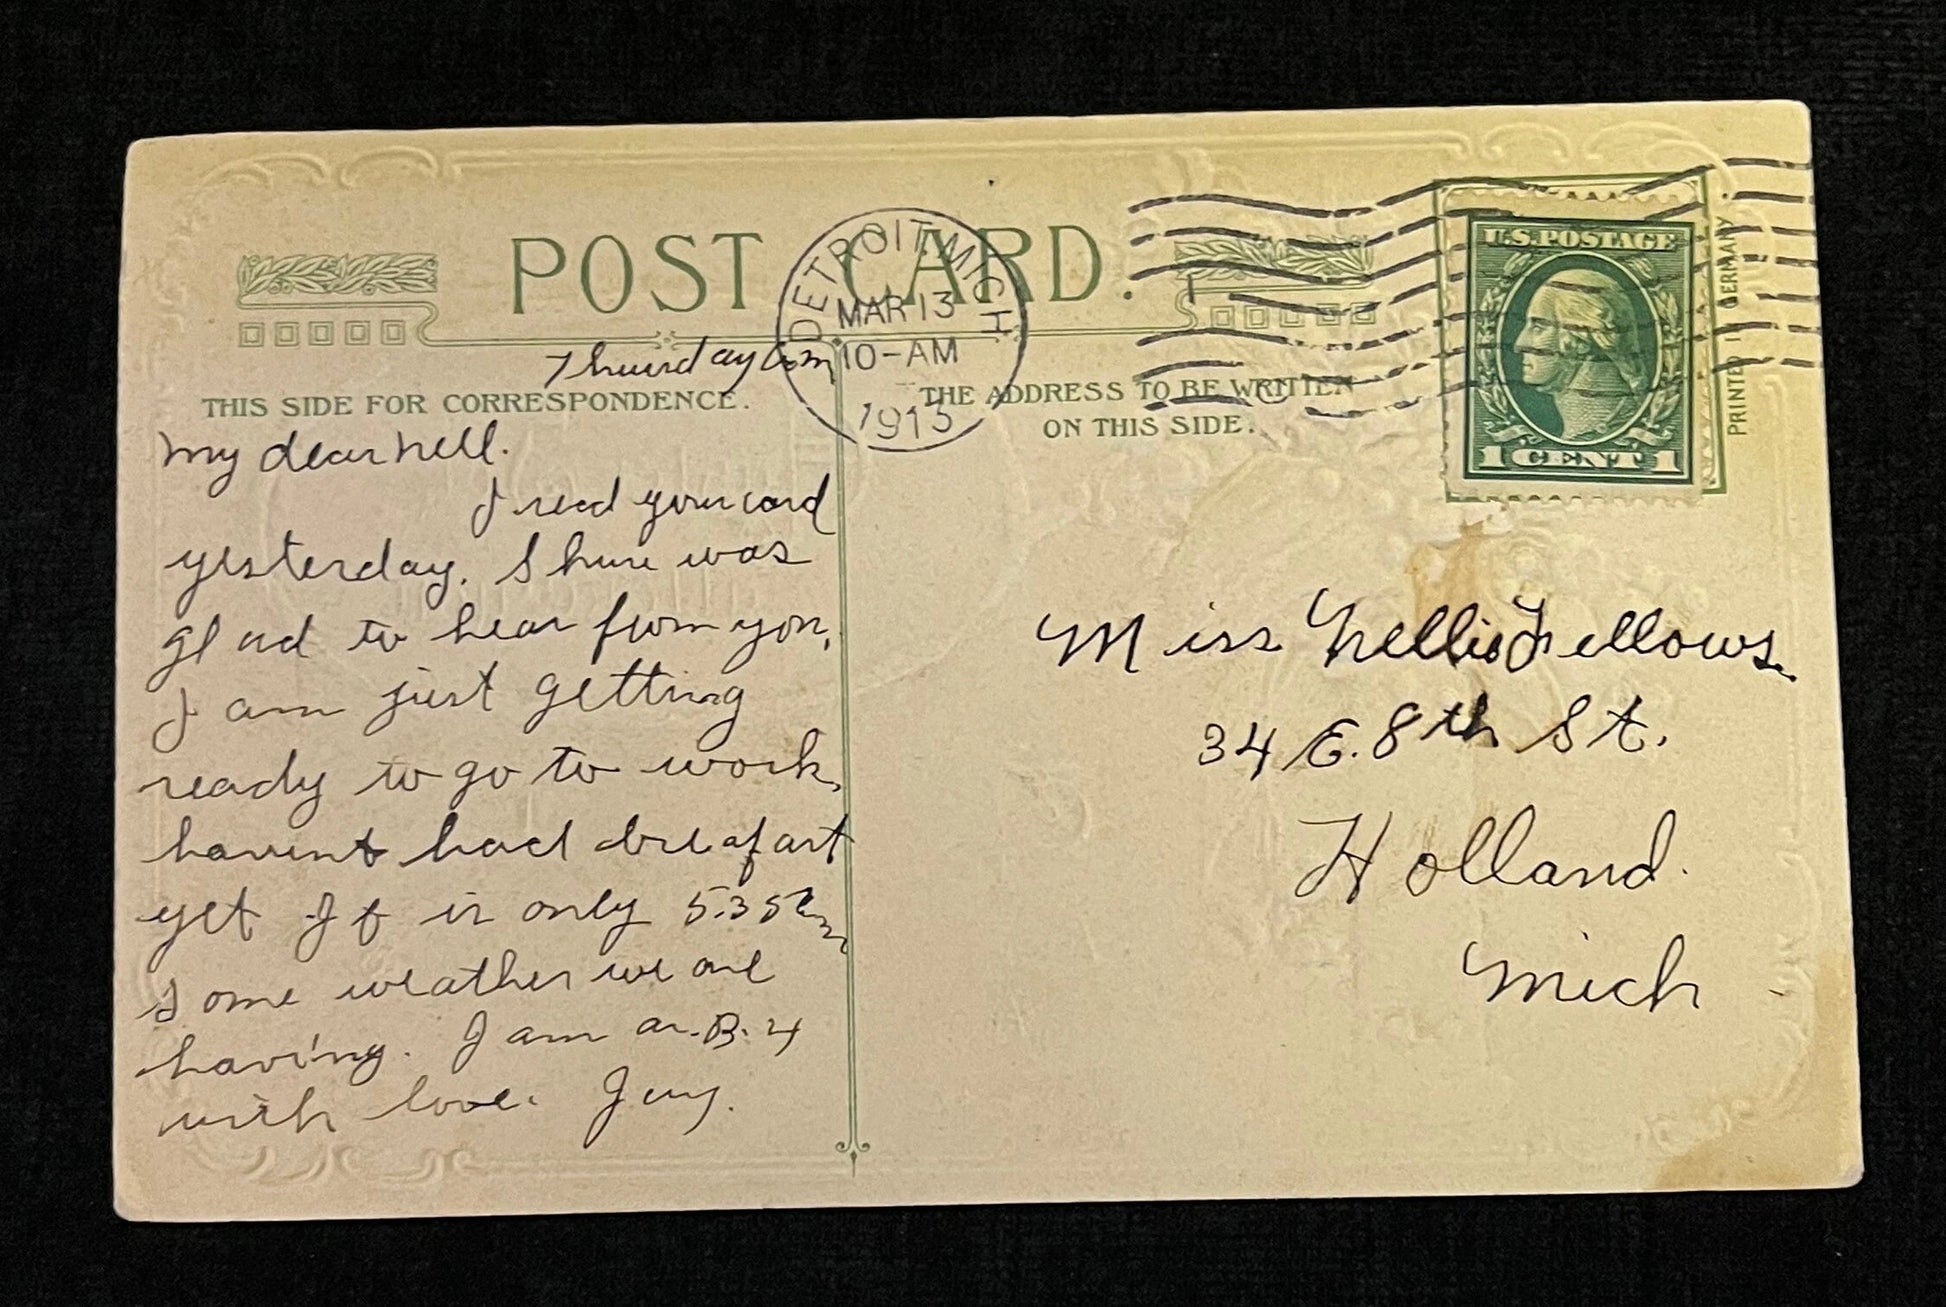 POST CARD.
DETROIT, MICH
MAR 13
10-AM
1913
U.S. POSTAGE
1 CENT 1
PRINTED IN GERMANY.
THIS SIDE FOR CORRESPONDENCE.
THE ADDRESS TO BE WRITTEN
ON THIS SIDE.
Thursday am
My dear Nell.
I recd your card
yesterday. Shure was
glad to hear from you,
I am just getting
ready to go to work,
havent had breafast
yet If is only 5.35 am
Some weather we are
having. I am as B. 4
with love.
Miss Nellie Fellows.
34 E. 8th St.
Holland.
Mich